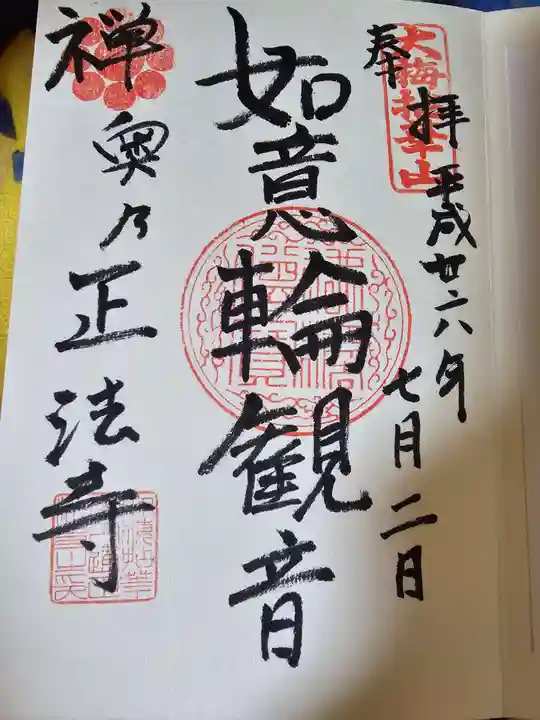 奉拝
大梅拈華山
平成廿六年
七月二日
如意輪観音
禅
奥乃正法寺